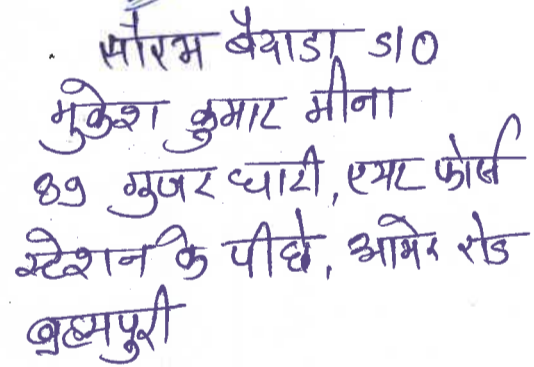 सौरभ बैयाडा S/O
मुकेश कुमार मीना
89 गुजर घाटी, एयर फोर्स
स्टेशन के पीछे, आमेर रोड
ब्रह्मपुरी